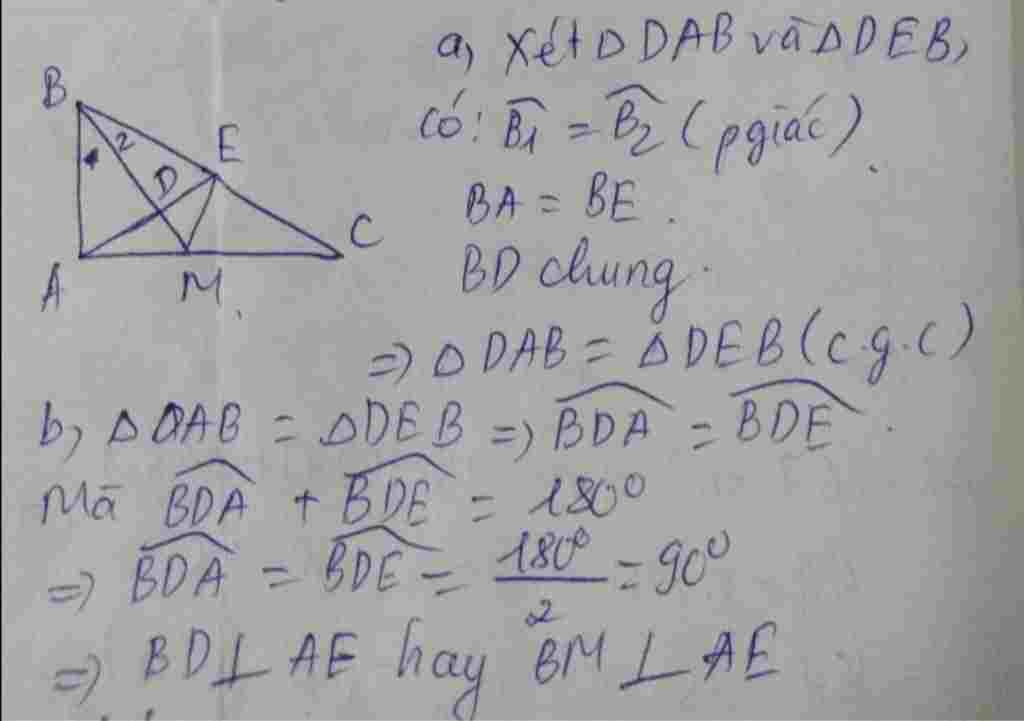 a, Xét Δ DAB và Δ DEB,
có: B̂1 = B̂2 (pgiác).
BA = BE.
BD chung.
=> Δ DAB = Δ DEB (c.g.c)
B
1
2
E
D
C
A
M
b, Δ DAB = Δ DEB => BDA = BDE.
Mà BDA + BDE = 180⁰
=> BDA = BDE = 180⁰/2 = 90⁰
=> BD ⊥ AE hay BM ⊥ AE